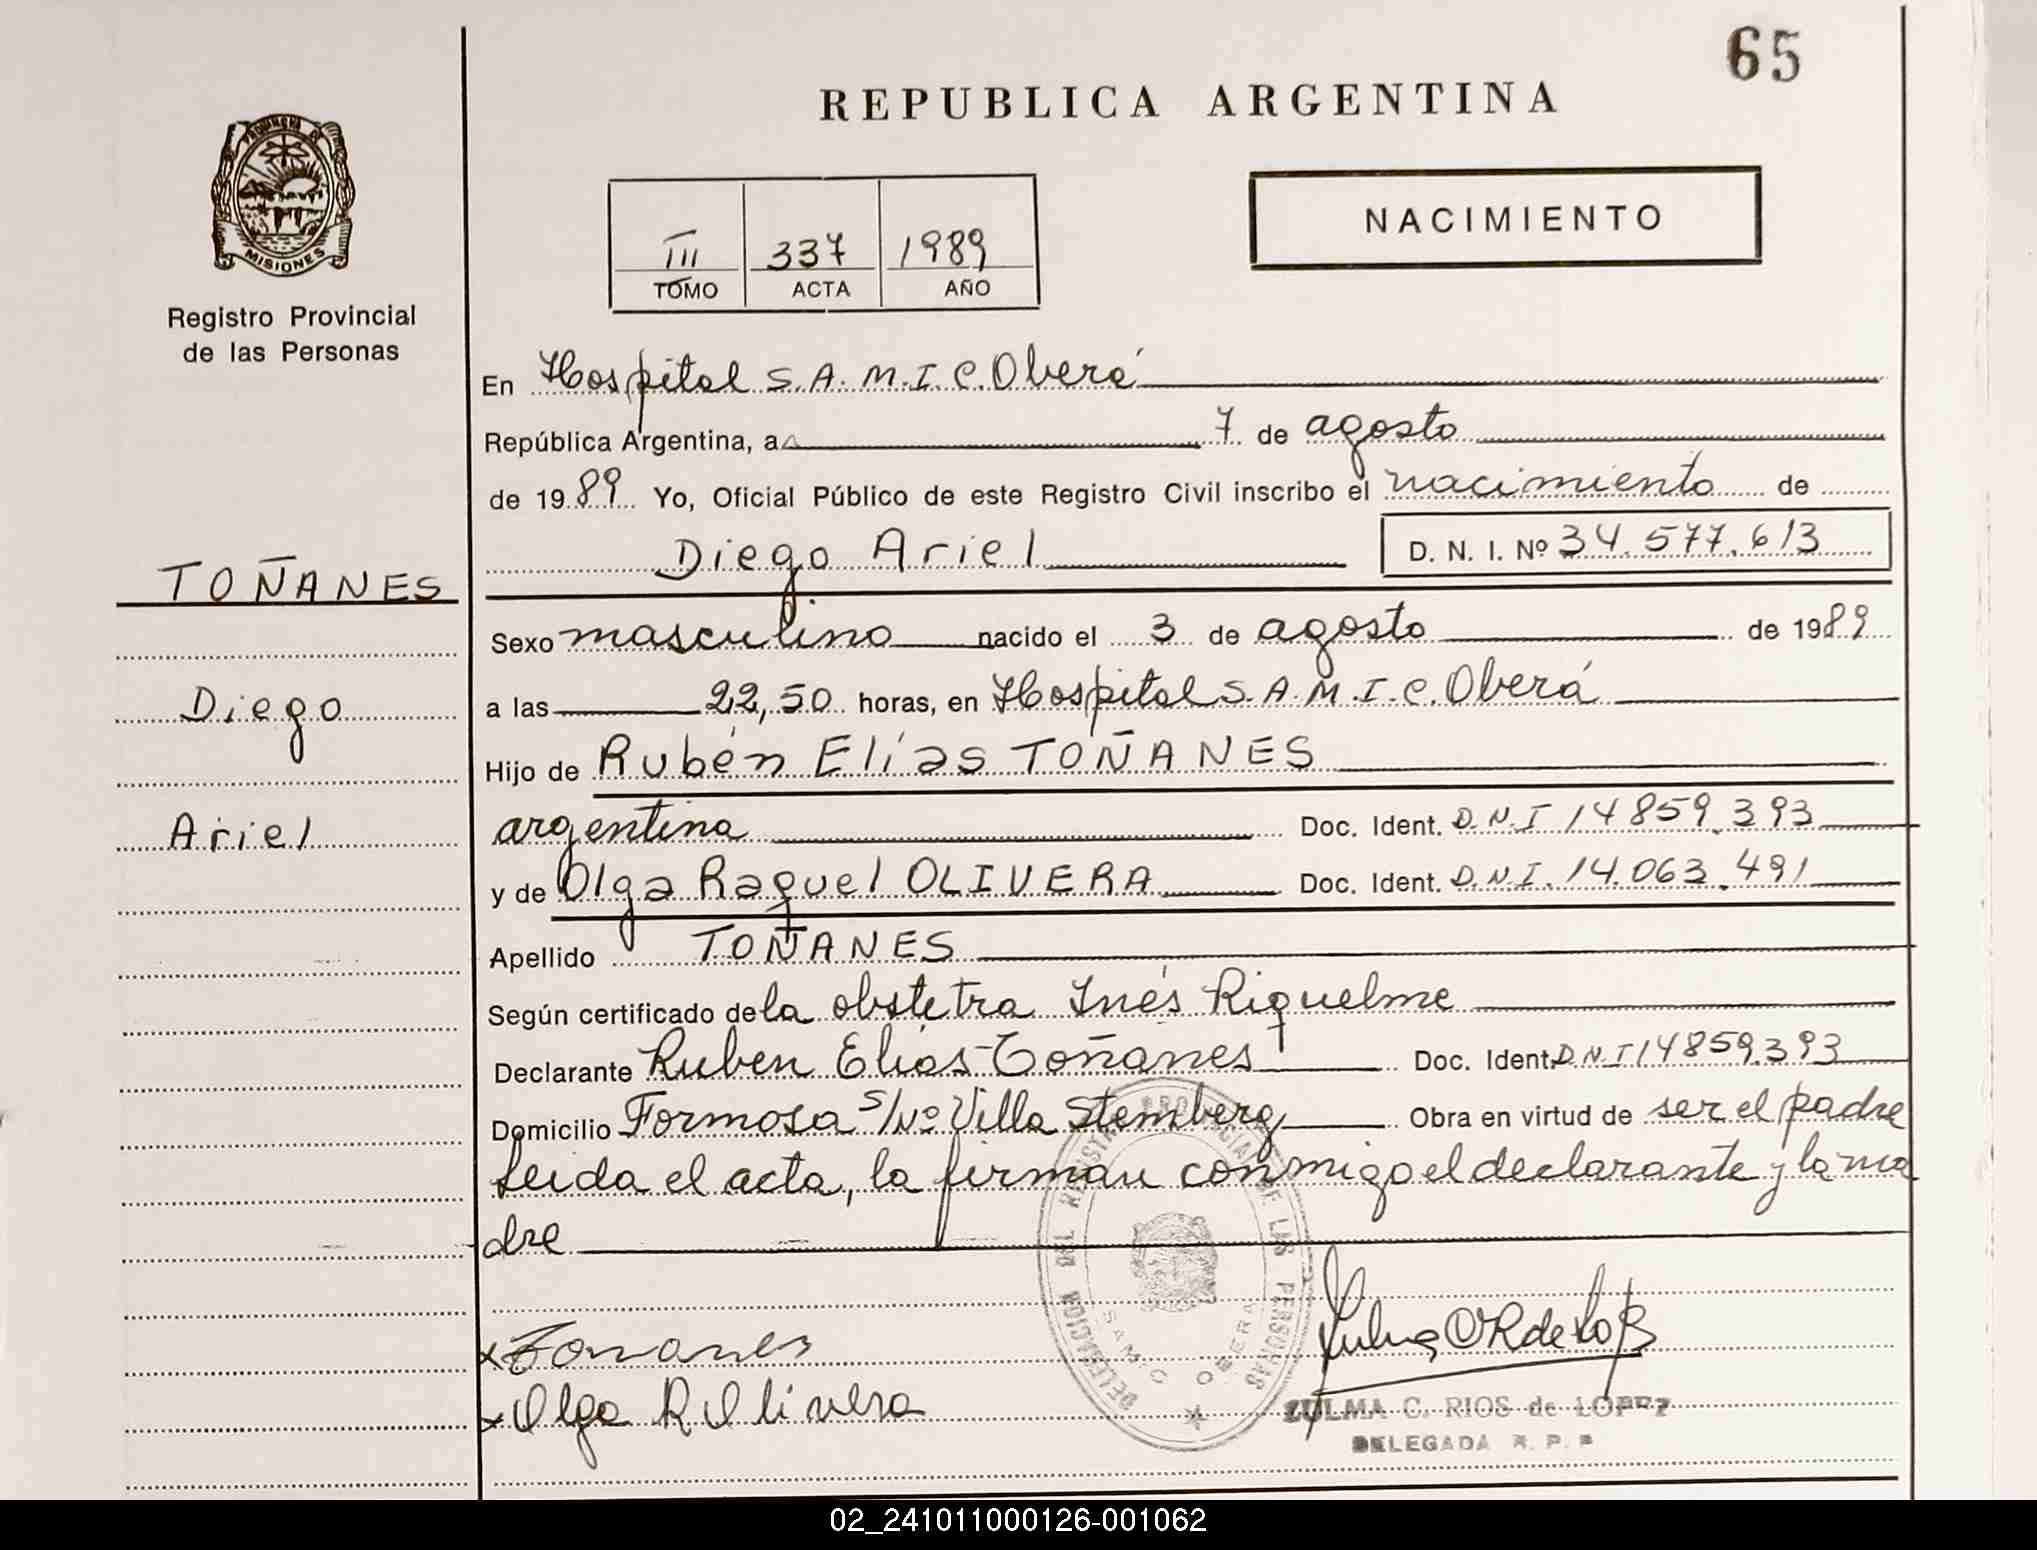 65
REPUBLICA ARGENTINA
PROVINCIA DE
MISIONES
NACIMIENTO
III 337 1989
TOMO ACTA AÑO
Registro Provincial
de las Personas
En Hospital S.A.M.I.C. Oberá
República Argentina, a 7 de agosto
de 1989 Yo, Oficial Público de este Registro Civil inscribo el nacimiento de
Diego Ariel D. N. I. Nº 34.577.613
TOÑANES
Diego
Ariel
Sexo masculino nacido el 3 de agosto de 1989
a las 22,50 horas, en Hospital S.A.M.I.C. Oberá
Hijo de Rubén Elías TOÑANES
argentina Doc. Ident. D.N.I 14859.393
y de Olga Raquel OLIVERA Doc. Ident. D.N.I. 14.063.491
Apellido TOÑANES
Según certificado de la obstetra Inés Riquelme
Declarante Ruben Elías Toñanes Doc. Ident. D.N.I 14859.393
Domicilio Formosa S/Nº Villa Stemberg Obra en virtud de ser el padre
Leida el acta, la firman conmigo el declarante y la ma
dre
DELEGACION DEL REGISTRO PROVINCIAL DE LAS PERSONAS
SAMIC OBERA
x Tonanes
x Olga R Olivera
ZULMA C. RIOS de LOPEZ
DELEGADA R. P. P
02_241011000126-001062